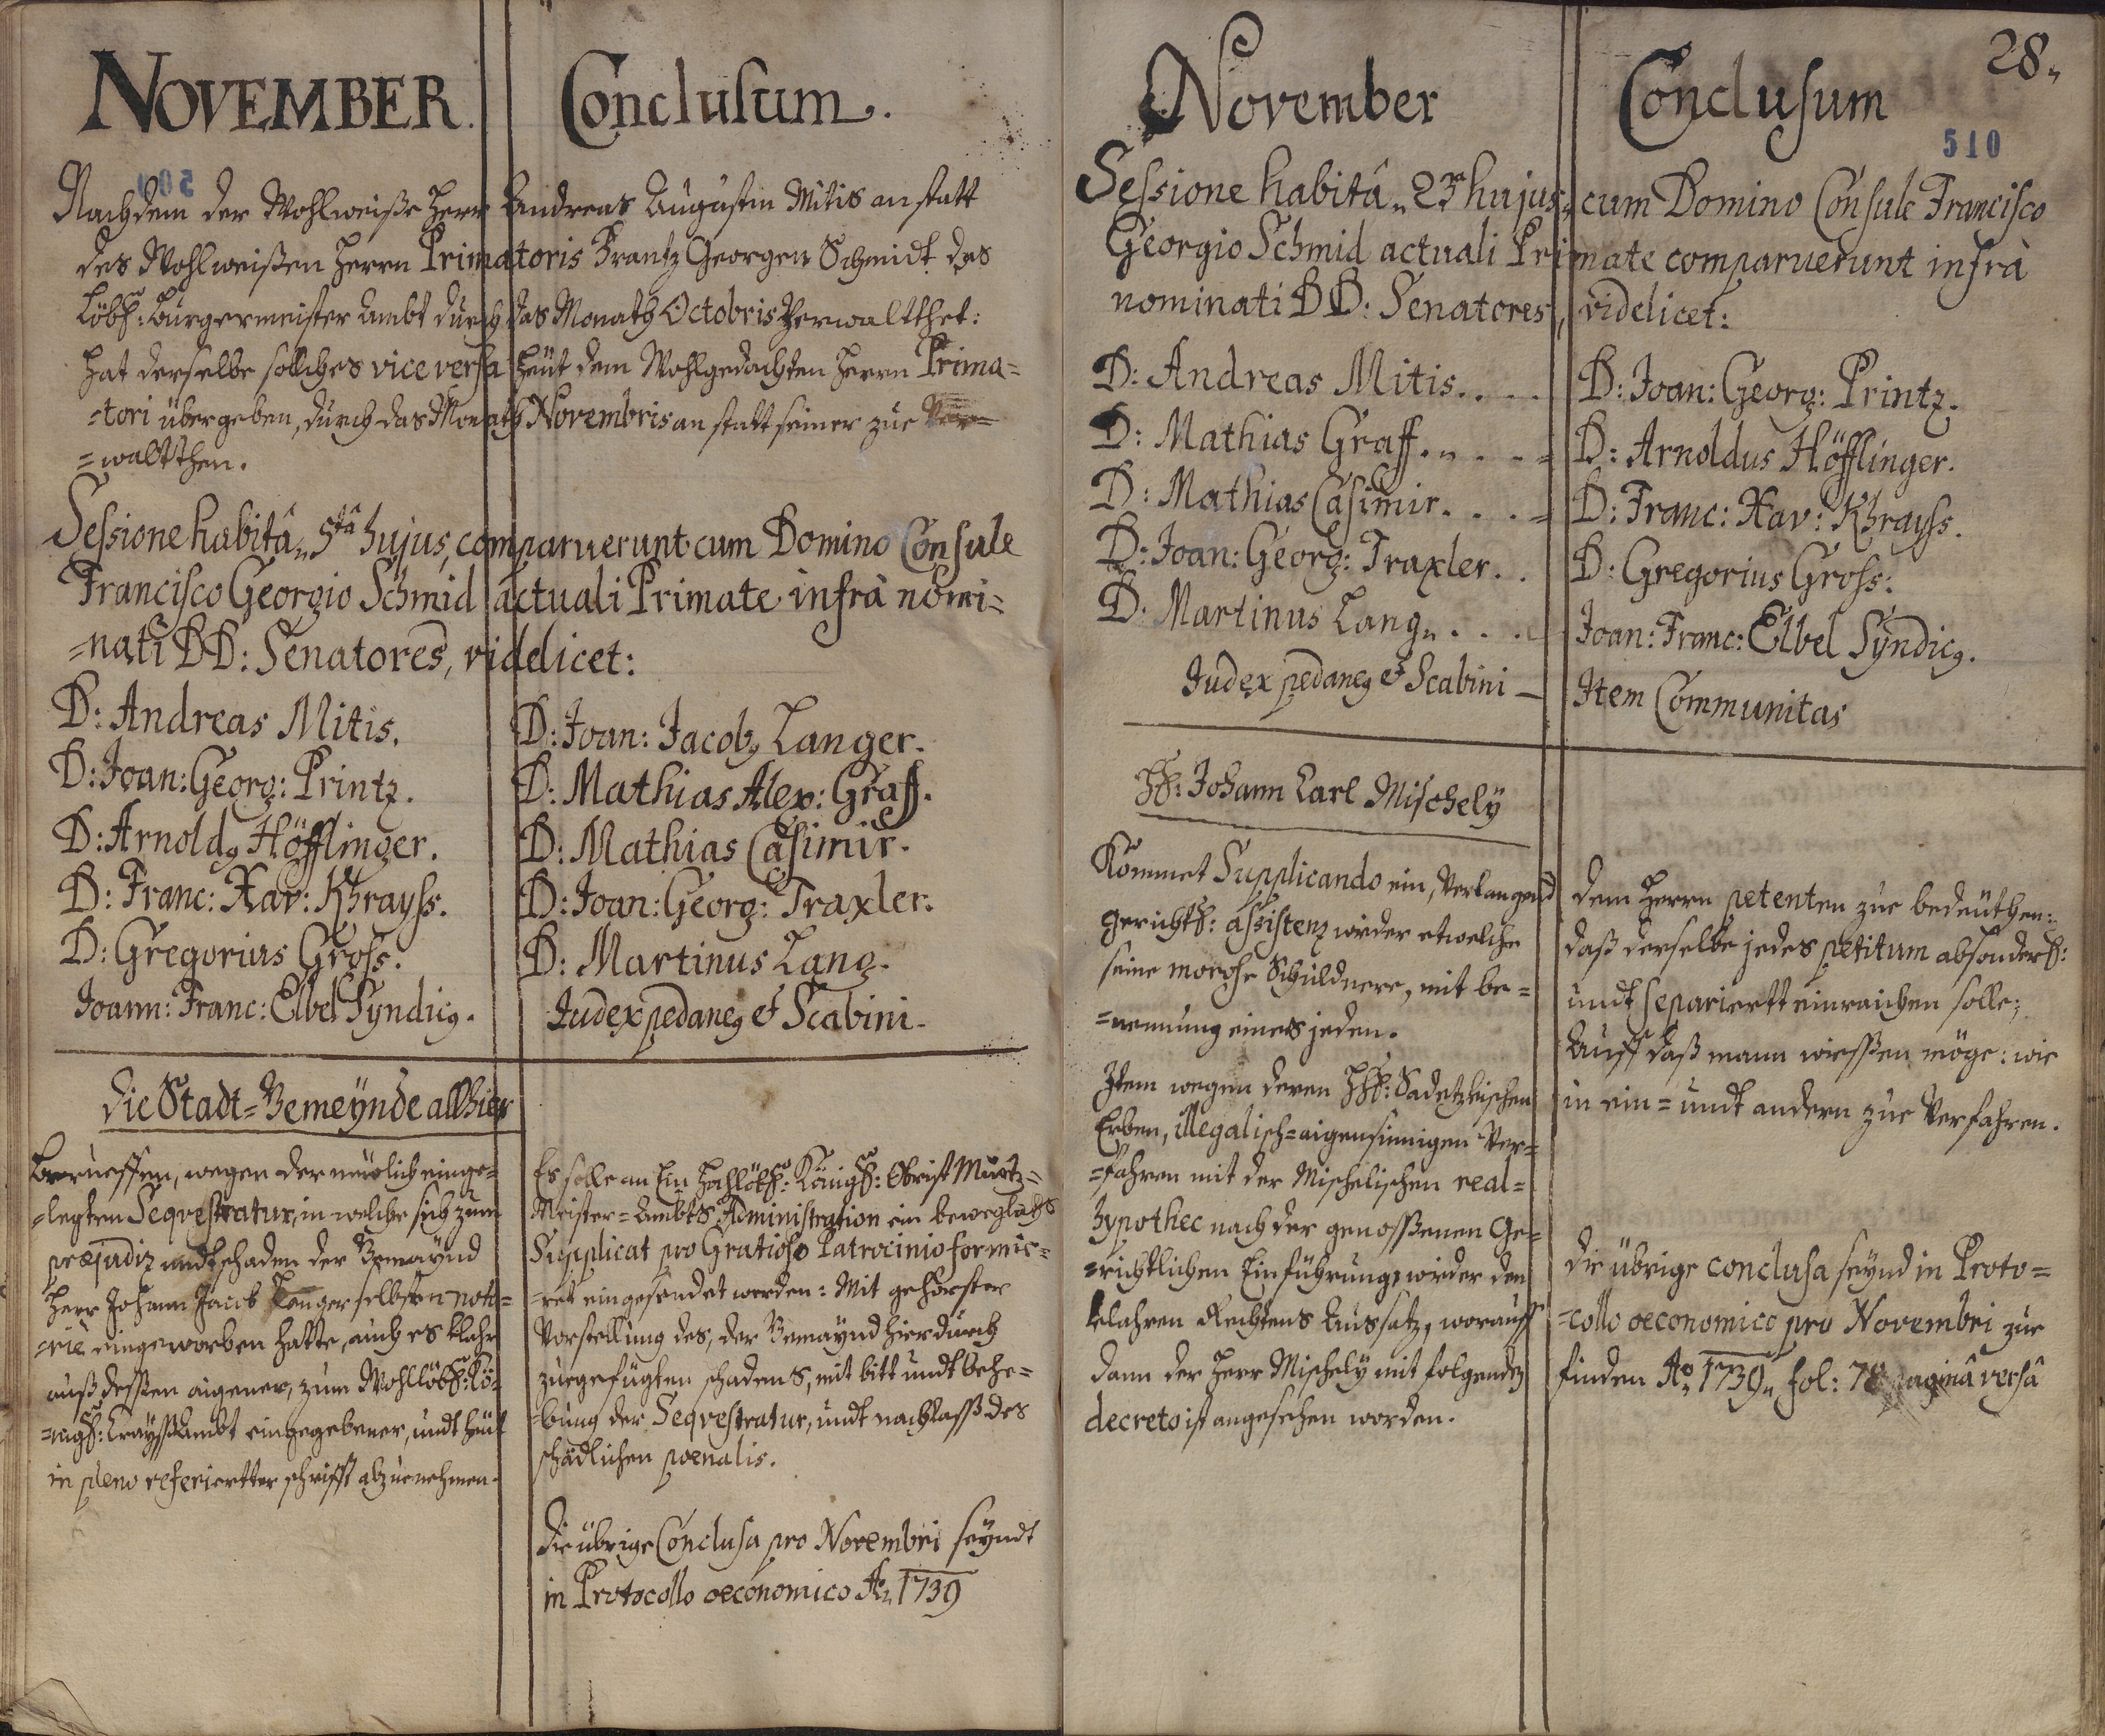 NOVEMBER. Conclusum.
Nachdem der Wohlweiße Herr Andreas Augustin Mitis anstatt
des Wohlweißen Herrn Primatoris Frantz Georgen Schmidt das
Löbl: Burgermeister Ambt durch das Monath Octobris Verwaltthet:
hat derselbe solches vice versa heüt dem Wohlgedachten Herrn Prima=
=tori übergeben, durch das Monath Novembris anstatt seiner zue Ver=
=waltthen.
Sessione habitâ„ 5tâ hujus, comparuerunt cum Domino Consule
Francisco Georgio Schmid actuali Primate infrà nomi=
=nati DD: Senatores, videlicet:
D: Andreas Mitis.
D: Joan: Georg: Printz.
D: Arnold9 Höfflinger.
D: Franc: Xav: Khrayss.
D: Gregorius Gross.
Joann: Franc: Elbel Syndic9.
D: Joan: Jacob9 Langer.
D: Mathias Alex: Graff.
D: Mathias Casimir.
D: Joan: Georg: Traxler.
D: Martinus Lang.
Judex pedane9 et Scabini.
Die Stadt=Gemeynde allhier
Beruessen, wegen der neülich einge=
=legten Seqvestratur, in welche sich zum
præjudiz undt schaden der Gemaynd
Herr Johann Jacob Langer selbsten noto=
=riè eingeworben hatte, auch es klahr
auß dessen aigener, zum Wohllöbl: Kö=
=nigl: Crayßambt eingegebener, undt heüt
in pleno referiertter schrifft abzuenehmen.
Es solle an Ein Hochlöbl: Königl: Obrist Müntz=
Meister=Ambts Administration ein beweglichs
Supplicat pro Gratioso Patrocinio formie=
=ret eingesendet werden: Mit gehorster
Vorstellung des, der Gemaynd hierdurch
zuegefügten schadens, mit bitt undt behe=
=bung der Seqvestratur, undt nachlaß des
schädlichen poenalis.
Die übrige Conclusa pro Novembri seyndt
in Protocollo oeconomico Ao„ 1739
November Conclusum 28„
510
Sessione habitâ„ 23 hujus„ cum Domino Consule Francisco
Georgio Schmid actuali Primate comparuerunt infrà
nominati DD: Senatores, videlicet:
D: Andreas Mitis....
D: Mathias Graff.„...=
D: Mathias Casimir....=
D: Joan: Georg: Traxler..
D: Martinus Lang„...
Judex pedane9 et Scabini –
D: Joan: Georg: Printz.
D: Arnoldus Höfflinger.
D: Franc: Xav: Khrayss.
D: Gregorius Gross:
Joan: Franc: Elbel Syndic9.
Item Communitas
H: Johann Carl Mischelÿ
Kommet Supplicando ein, Verlangend
gerichtl: assistenz wider etwelche
seine morose Schuldnere, mit be=
=nennung eines jeden.
Item wegen deren Sadetzkischen
Erben, illegalisch=aigensinnigen Ver=
=fahren mit der Mischelischen real=
Hypothec nach der genossenen Ge=
=richtlichen Einführung, wider den
klahren Rechtens Aussatz, worauff
dann der Herr Mischely mit folgendem
decreto ist angesehen worden.
dem Herrn petenten zue bedeüthen:
daß derselbe jedes petitum absonderl:
undt separiertt einraichen solle;
Auff daß mann wiessen möge: wie
in ein= undt andern zue Verfahren.
Die übrige conclusa seynd in Proto=
=collo oeconomico pro Novembri zue
finden Ao„ 1739„ fol: 78 paginâ versâ